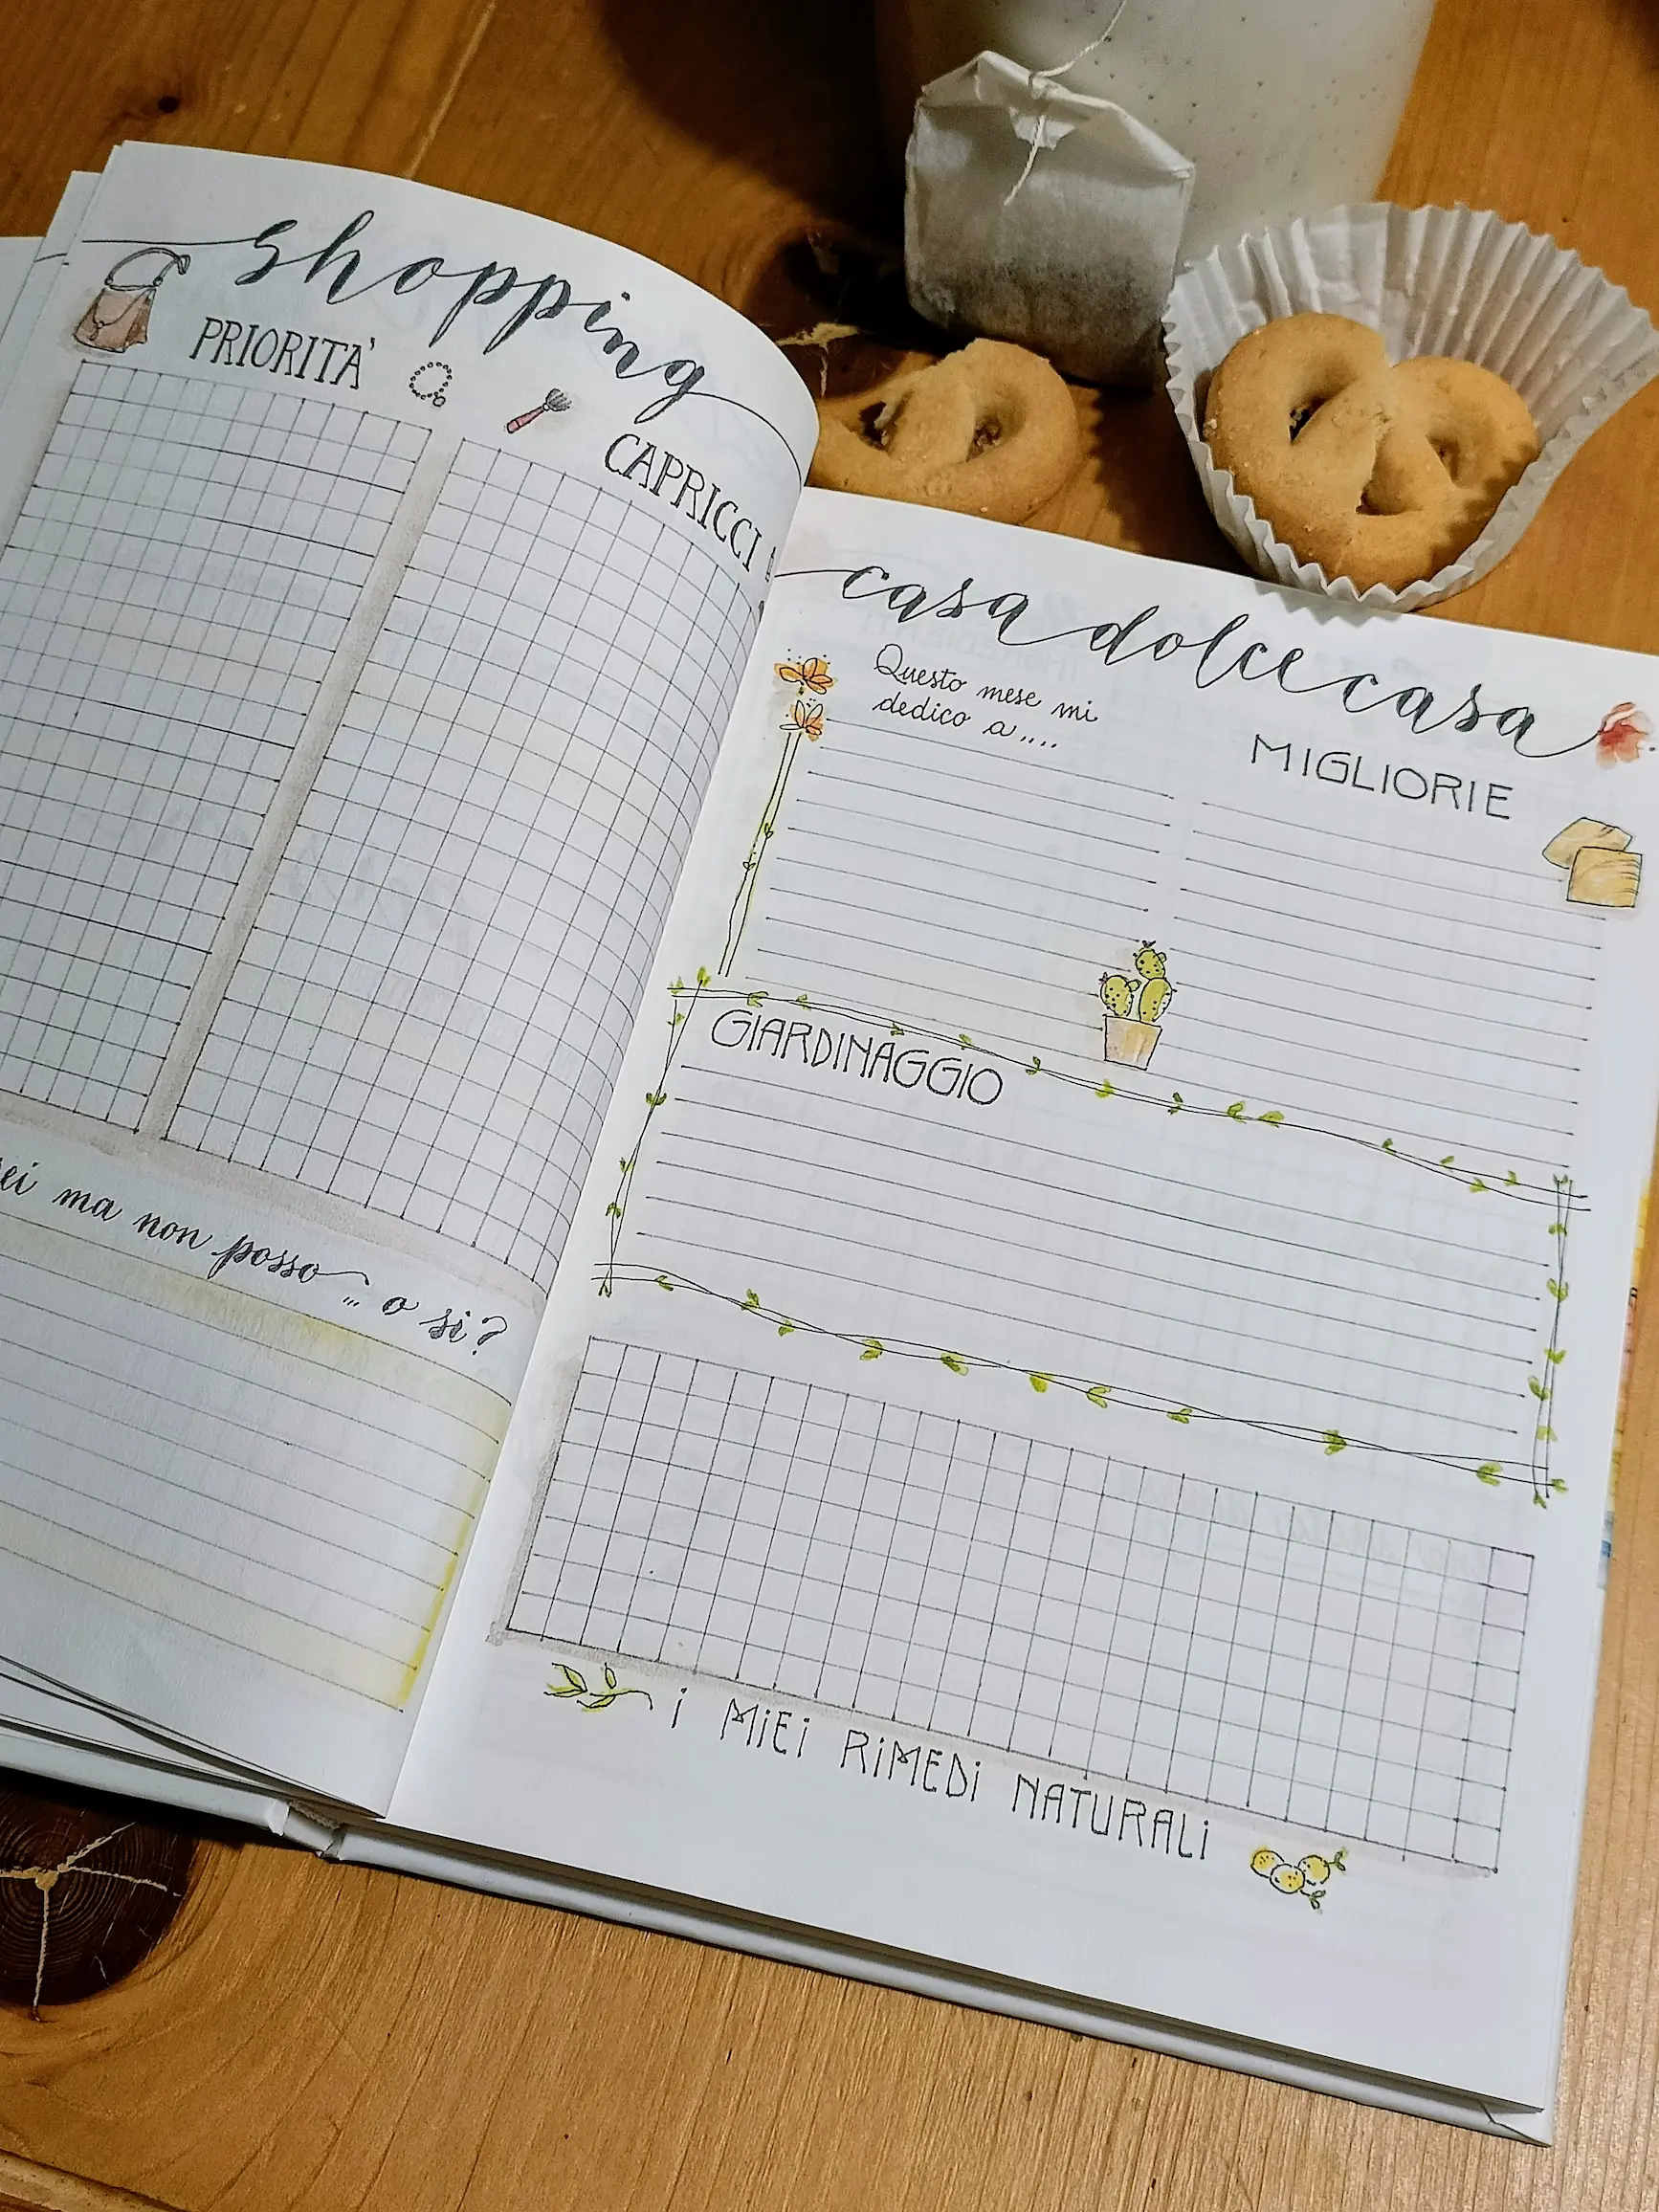 shopping
PRIORITÀ
CAPRICCI
ma non posso ... o si?
casa dolce casa
Questo mese mi
dedico a....
MIGLIORIE
GIARDINAGGIO
i MiEi RiMEDi NATURALi